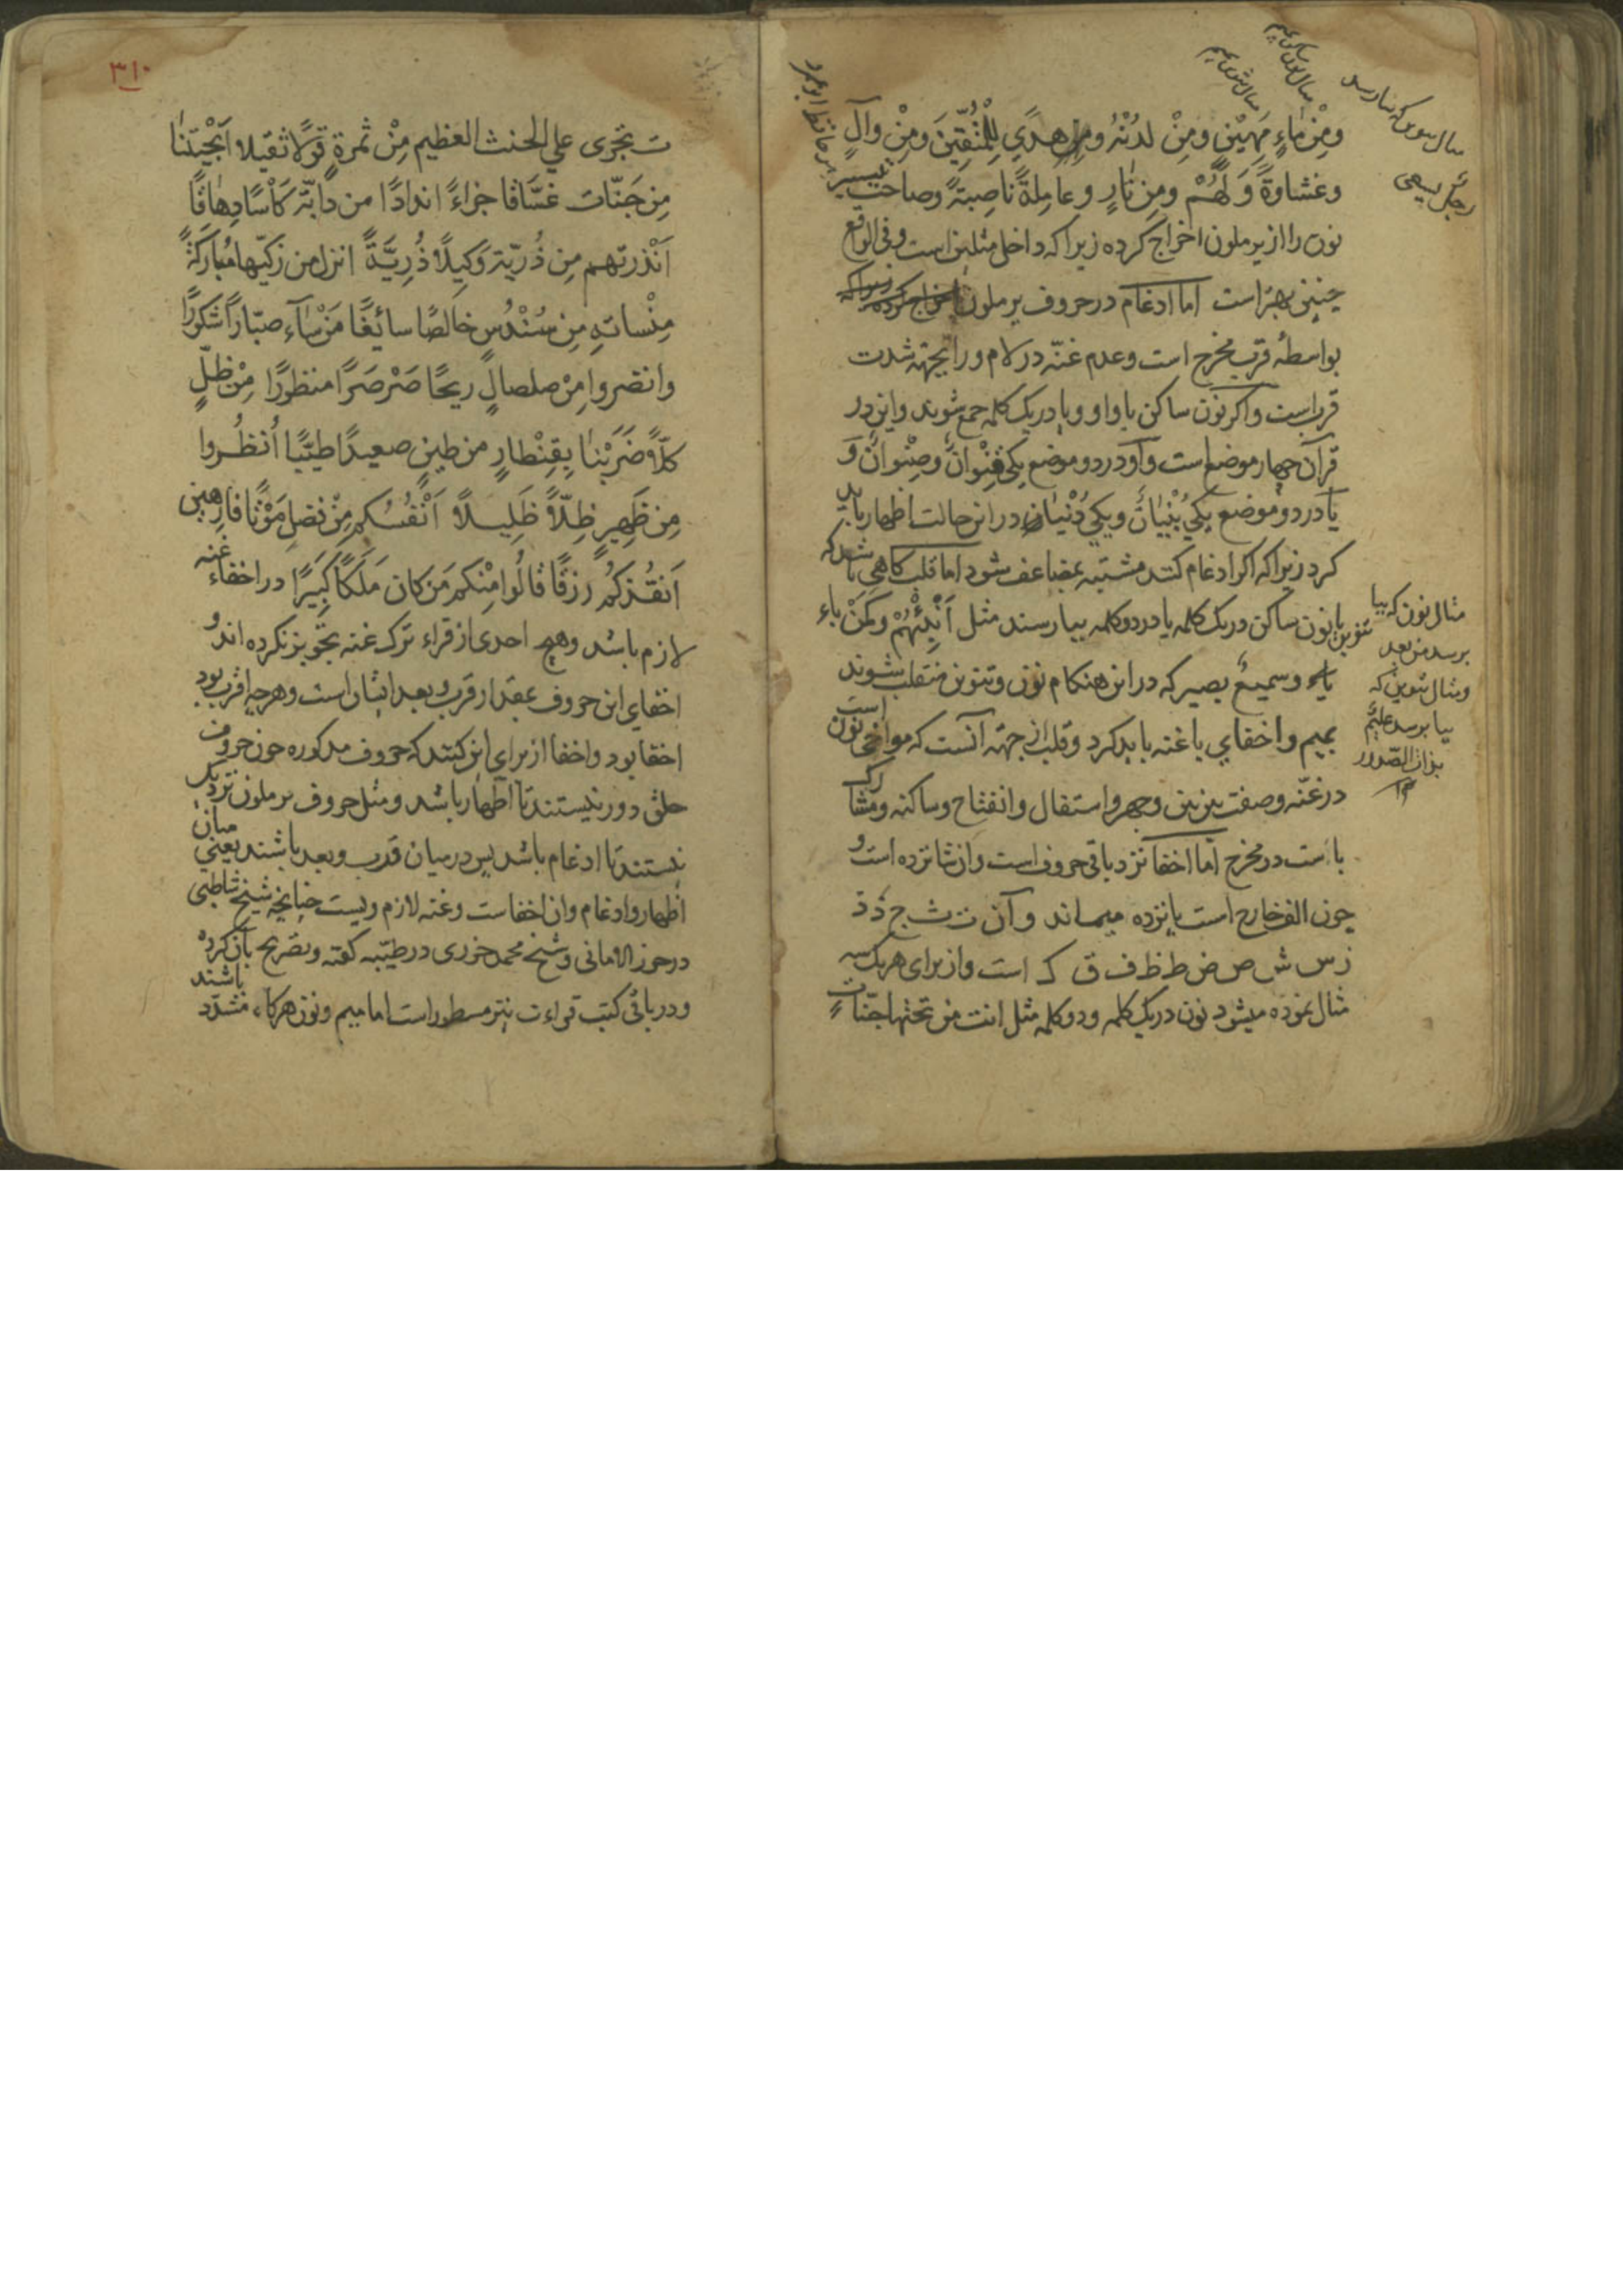 ومِنْ مَاءٍ مَهِيْنٍ ومِنْ لدُنْهُ ومن هدًي لِلْمُتَّقِيْنَ ومِنْ والٍ
وغشاوةً وَلَهُمْ ومن نَارٍ وعاملةً ناصبةً وصاحب تيسير
نون را از يرملون اخراج كرده زيرا كه داخل مثلين است وفى الواقع
چنين بهتر است اما ادغام در حروف يرملون
بواسطهٔ قرب مخرج است وعدم غنّه در لام ورا بجهة شدت
قربست واكر نون ساكن با واو ويا در يك كلمه جمع شوند واين در
قرآن چهار موضع است واو در دو موضع يكى قِنْوانٌ وصِنْوانٌ وَ
يا در دو موضع يكي بُنْيَانٌ ويكي دُنْيَا در اين حالت اظهار بايد
كرد زيرا كه اكر ادغام كنند مشتبه بمضاعف شود اما قلب كاهى باشد كه
تنوين يا نون ساكن در يك كلمه يا در دو كلمه ببا رسند مثل اَنْبِئْهُمْ وَمَنْ باء
وسميعٌ بصير كه در اين هنكام نون وتنوين منقلب بشوند
بميم واخفاي با غنه بايد كرد وقلب از جهة آنست كه مواخى نون است
در غنّه وصفت بين بين وجهر واستفال وانفتاح وساكنه ومشارك
با است در مخرج اما اخفا نزد باقى حروف است وان شانزده است و
چون الف خارج است پانزده ميماند وآن ت ث ج د ذ
ز س ش ص ض ط ظ ف ق ك است واز براى هر يك سه
مثال نموده ميشود نون در يك كلمه ودو كلمه مثل انت من تحتها جنّاتٍ
مثال تنوين كه بيا رسد
رجلٌ يسعى
مثال نون كه ببا
برسد من بعد
ومثال تنوين كه
ببا برسد عليمٌ
بذات الصّدور
١٢
٣١٠
تجرى على الحنث العظيم مِنْ ثمرةٍ قولًا ثقيلا اَنْجَيْتَنَا
مِن جَنّات غسّاقا جزاءً اندادًا من دابّة كَأْسًا دِهَاقًا
اَنْذرتهم مِن ذُرّيّة وَكِيلًا ذُرِيَّةً انزل من زكّيها مُبَارَكَةً
مِنْساته مِن سُنْدُسٍ خالصًا سائِغًا مَنْ شآء صبّاراً شكورًا
وانصروا مِنْ صلصالٍ ريحًا صَرْصَرًا منظورًا مِنْ ظلٍّ
كلّا ضَرَبْنَا بِقِنْطارٍ من طينٍ صعيدًا طيّبًا اُنظُروا
مِن ظَهِيرٍ ظِلّاً ظَلِيلاً اَنْفُسُكم مِنْ فضل مَوْثِقًا فارهين
اَنْقَذَكُم رزقًا قالُوا مِنْكم مَن كان مَلَكًا كَبِيرًا در اخفاء غنه
لازم باشد وهيچ احدى از قراء ترك غنه تجويز نكرده اند و
اخفاي اين حروف بمقدار قرب وبعد ايشان است وهر چه اقرب بود
اخفا بود واخفا از براي اين كنند كه حروف مذكوره چون حروف
حلق دور نيستند تا اظهار باشد ومثل حروف يرملون نزديك
نيستند تا ادغام باشد پس در ميان قرب وبعد باشند يعنى ميان
اظهار وادغام وان اخفاست وغنه لازم ويست چنانچه شيخ شاطبى
در حرز الامانى وشيخ محمد جزرى در طيّبه كفته وتصريح بآن كرده
ودر باقى كتب قراءت نيز مسطور است اما ميم ونون هركاه مشدّد باشند